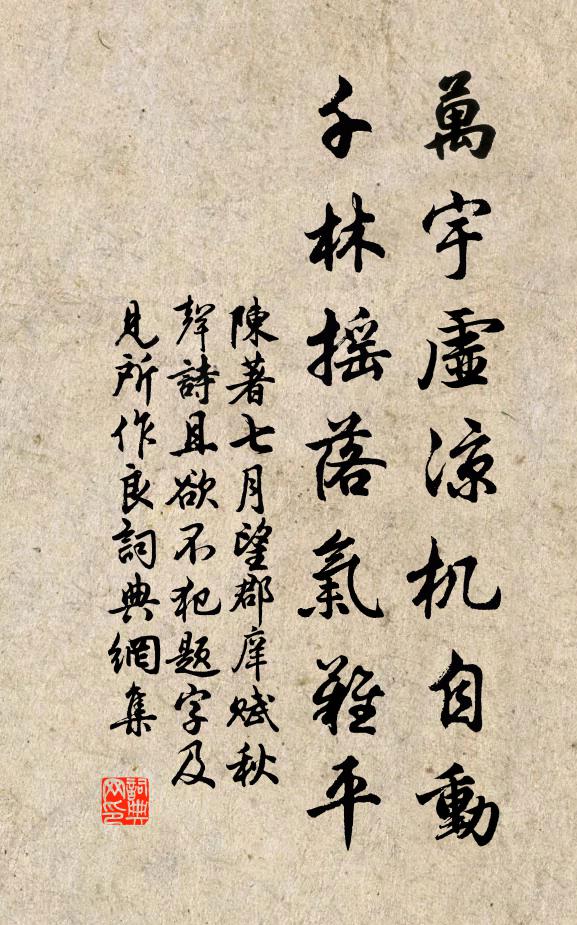 萬宇虛涼机自動
千林摇落氣難平
陳著七月望郡庠賦秋
聲詩且欲不犯題字及
見所作良詞典網集
詞典
网印